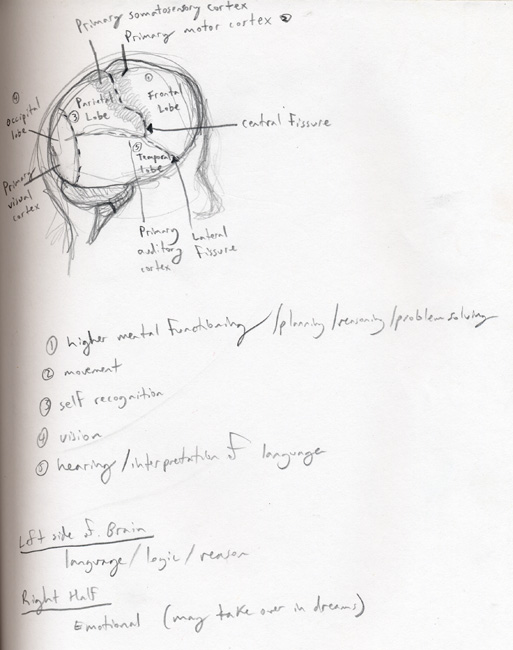 Primary somatosensory cortex
Primary motor cortex ②
① Frontal
Lobe
Parietal
③ Lobe
④
occipital
lobe
central Fissure
⑤
Temporal
Lobe
Primary
visual
cortex
Primary
auditory
cortex
Lateral
Fissure
① higher mental functioning /planning/reasoning/problem solving
② movement
③ self recognition
④ vision
⑤ hearing/interpretation of language
Left side of Brain
language/logic/reason
Right Half
Emotional (may take over in dreams)